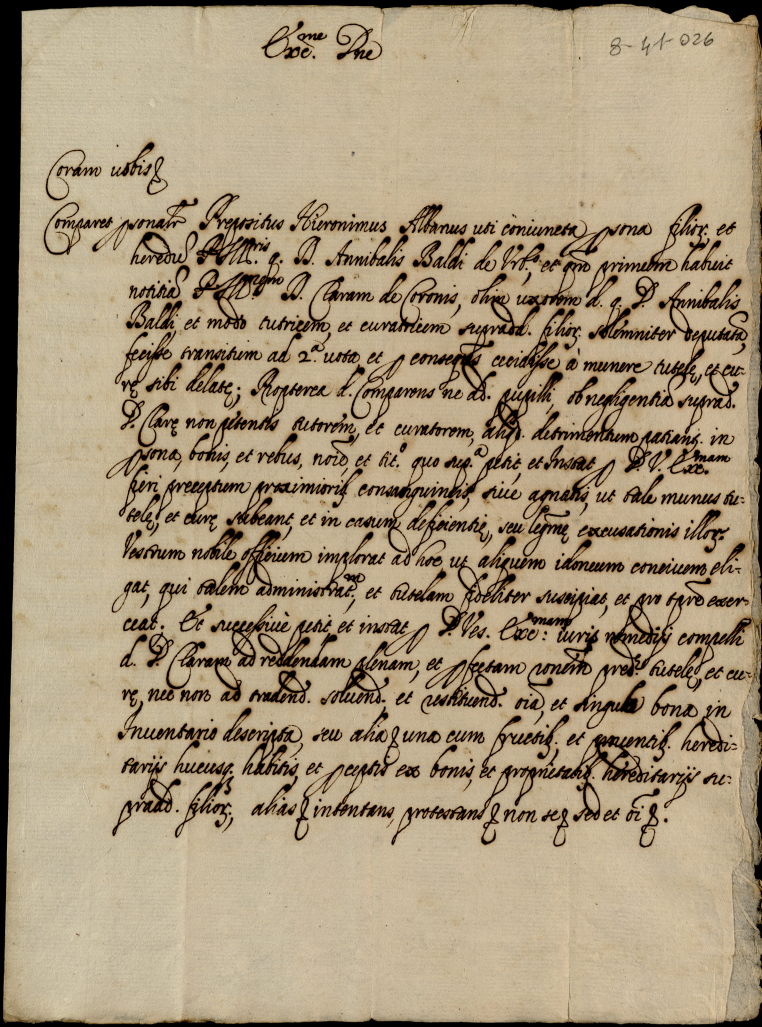 Exc.me Dne
8-41-026
Coram uobis
Comparet psonalr Prepositus Hieronimus Albanus uti coniuncta psona filior. et
heredu q. D. Annibalis Baldi de Vrb.e, et qm primum habuit
notitia D. Claram de Coronis, olim uxorem d. q. D. Annibalis
Baldi, et modo tutricem, et curatricem supradd. filior. solemniter deputata,
fecisse transitum ad 2.a uota, et p consequens cecidisse à munere tutelę, et cu-
rę sibi delatę; Propterea d. Comparens ne dd. pupilli ob negligentia suprad.
D. Clarę non petentis tutorem, et curatorem, aliqd. detrimentum patiant. in
psona, bonis, et rebus, noie, et tit.o quo sup.a petit, et instat p D. V. Exc.mam
fieri preceptum proximiorib. consanguineis, siue agnatis, ut tale munus tu-
telę, et curę subeant, et in casum deficientię, seu legmę excusationis illor.
Vestrum nobile officium implorat ad hoc ut aliquem idoneum conciuem eli-
gat, qui talem administrat.m, et tutelam fideliter suscipiat, et pro tpre exer-
ceat. Et successiuè petit, et instat p D. Ves. Exc.mam: iuris remedijs compelli
d. D. Claram ad reddendam plenam, et pfectam ronem pred. tutelę, et cu-
rę, nec non ad tradend. soluend. et restituend. oia, et singula bona in
Inuentario descripta, seu alia una cum fructib. et prouentib. heredi-
tarijs hucusq. habitis, et pceptis ex bonis, et proprietatib. hereditarijs su-
pradd. filior., alias intentans, protestans non se sed et oi.